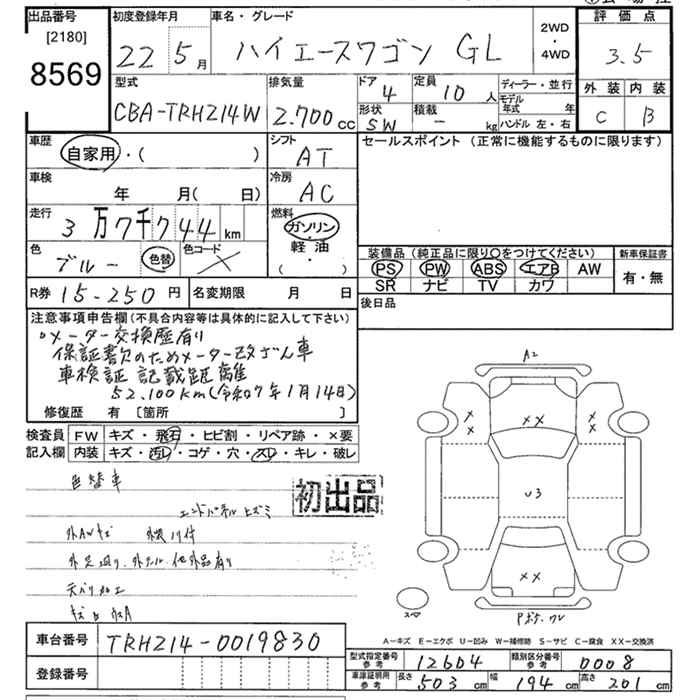 出品番号
[2180]
8569
初度登録年月
22 5月
車名・グレード
ハイエースワゴン GL
2WD
・
4WD
評価点
3.5
外装 内装
C B
型式
CBA-TRH214W
排気量
2.700 cc
ドア
4
形状
SW
定員
10 人
積載
- kg
ディーラー・並行
モデル年式 年
ハンドル 左・右
車歴
自家用・( )
シフト
AT
セールスポイント (正常に機能するものに限ります)
車検
年 月( 日)
冷房
AC
走行
3万7千744 km
燃料
ガソリン
軽油
( ・ )
色
ブルー 色替
色コード
装備品 (純正品に限り○をつけてください)
PS PW ABS エアB AW
SR ナビ TV カワ
新車保証書
有・無
R券 15-250円
名変期限 月 日
後日品
注意事項申告欄(不具合内容等は具体的に記入して下さい)
○メーター交換歴有り
保証書欠のためメーター改ざん車
車検証記載距離
52.100km(令和7年1月14日)
修復歴 有 [箇所 ]
検査員記入欄
FW キズ・飛石・ヒビ割・リペア跡・×要
内装 キズ・汚レ・コゲ・穴・スレ・キレ・破レ
色替車
初出品
エンドパネルヒズミ
外AWキズ
天バリ加工
A2
××
××
××
U3
××
スペア
A-キズ E-エクボ U-凹み W-補修跡 S-サビ C-腐食 XX-交換済
車台番号 TRH214-0019830
登録番号
型式指定番号 参考 12604
類別区分番号 参考 0008
車庫証明用 参考 長さ 503 cm 幅 194 cm 高さ 201 cm